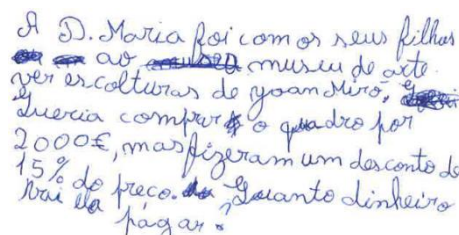 A D. Maria foi com os seus filhos
ao museu de arte.
ver escolturas de yoan Miró,
Queria comprar o quadro por
2000€, mas fizeram um desconto de
15% do preço. Quanto dinheiro
vai ela pagar.